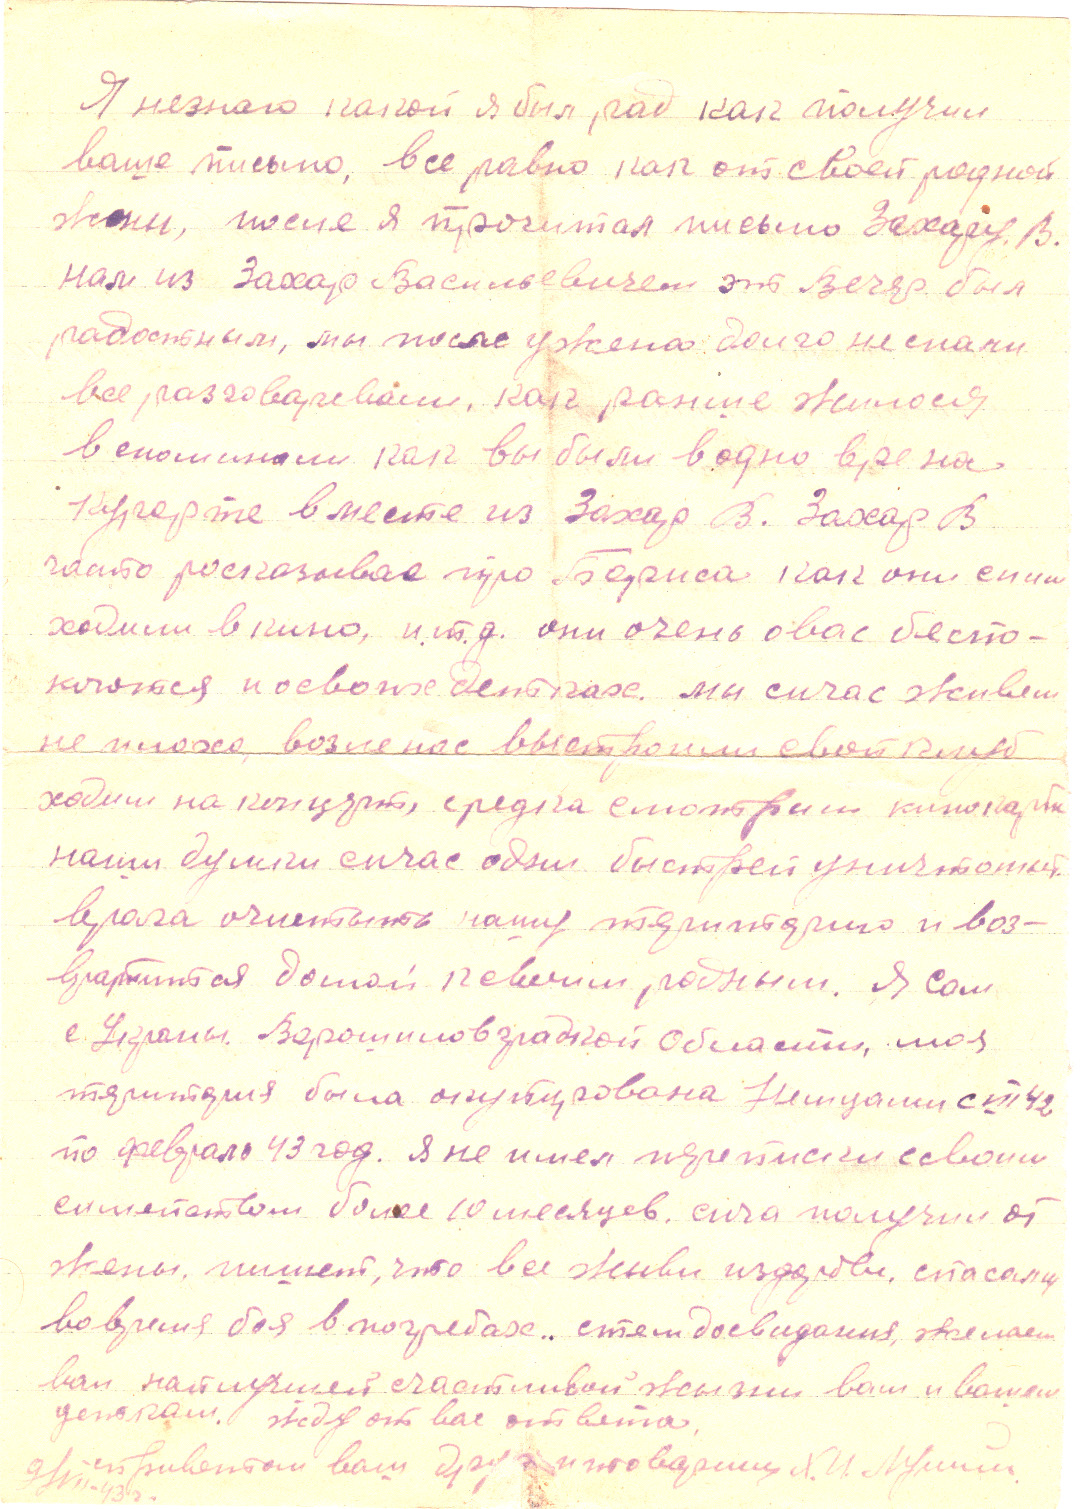 Я незнаю какой я был рад как получил
ваше письмо, все равно как от своей родной
жены, после я прочитал письмо Захару. В.
нам из Захар Васильевичем эт вечер был
радостным, мы после ужена долго не спали
все разговаревали, как ранше жилося
вспоминали как вы были водно вре на
Курорте вместе из Захар В. Захар В
часто росказывае про Бориса как они сним
ходили в кино, и.т.д. они очень овас беспо-
коютея и освоих детках. мы сичас живем
не плохо, возле нас выстроили свой клуб
ходим на концерт, средка смотрим
наши думки сичас одни быстрей уничтожит
врага очистыть нашу территорию и воз-
вратится домой к своим родным. Я сам
с Украны. Ворошиловградской Области, моя
территория была окупирована Немцами с
по февраль 43 год. Я не имел переписки с своим
симейством более 10 месяцев. сича получил от
жены, пишет, что все живи издорови. спасалиц
вовремя боя в погребах.. стем досвидания, желаем
вам наилучшей счастливой жызни вам и вашим
деткам. Жду от вас ответа,
сприветом ваш друг и товарищ Х. И.
43 г.